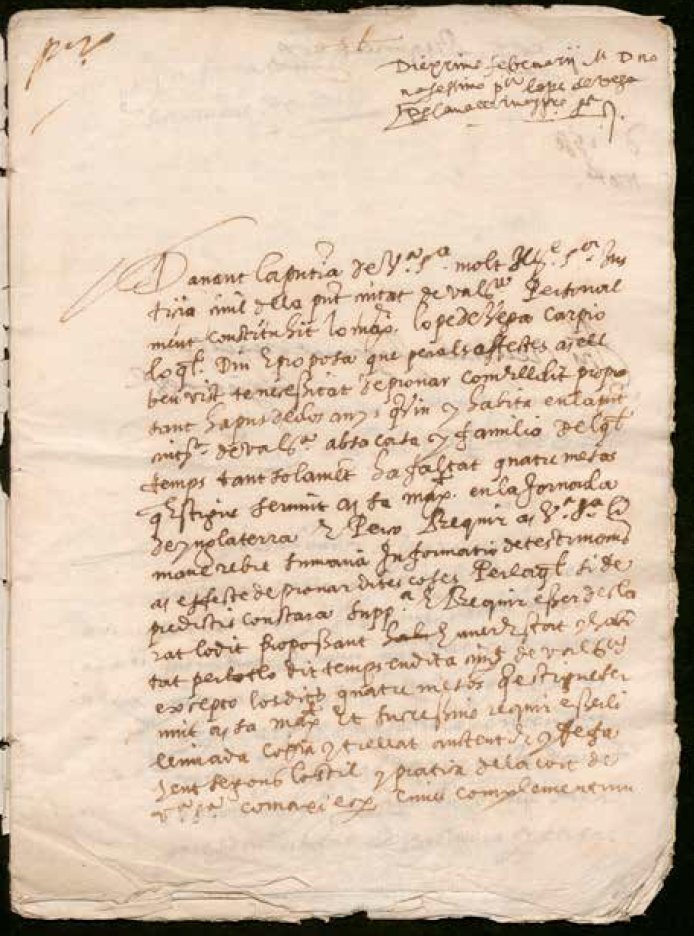 Die primo februarii M D no
nagessimo p^t lope de vega
Davant la pntia de V^a S^a molt Ill^e S^or Jus
ticia civil de la pnt ciutat de val^a Personal
ment constituhit lo mag^ch lope de Vega Carpio
lo q^l Diu E proposa que pera als effectes a ell
ben vist te necessitat de provar com ell dit propo
sant ha pus de dos anys que viu y habita en la pnt
ciut^t de val^a ab sa casa y familia del q^l
temps tant solament ha faltat quatre mesos
que estigue servint a sa mag^t en la Jornada
de ynglaterra E Pero Requir a V^a S^a li
mane rebre sumaria Informatio de testimonis
a effecte de provar dites coses Per la q^l si de
predictis constara supp^a E Requir esser decla
rat lo dit proposant haver estat y habi
tat per tot lo dit temps en dita ciut^t de val^a
excepto los dits quatre mesos que estigue ser
vint a sa mag^t Et successive requir esser li
lliurada copia y trellat autentich y fefa
hent segons lo stil y pratica de la cort de
V^a S^a com axi ex cuius complementum